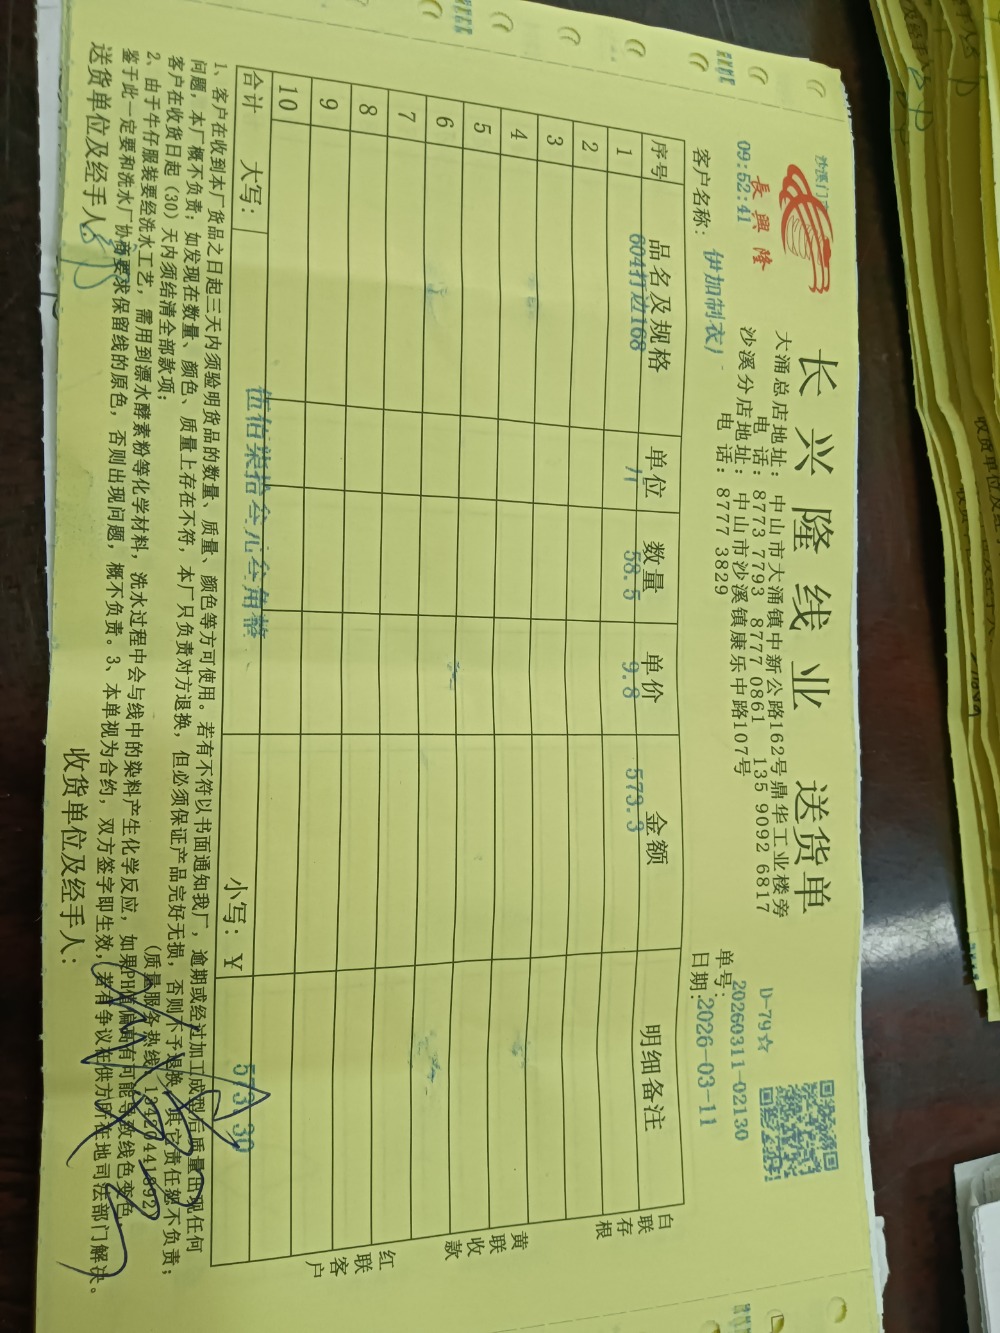 沙溪门
09:52:41
長興隆
长兴隆线业 送货单
大涌总店地址：中山市大涌镇中新公路162号鼎华工业楼旁
电 话：8773 7793 8777 0861 135 9092 6817
沙溪分店地址：中山市沙溪镇康乐中路107号
电 话：8777 3829
D-79☆
单号：20260311-02130
日期：2026-03-11
客户名称：伊加制衣厂
序号 品名及规格 单位 数量 单价 金额 明细备注
1 604打边168 58.5 9.8 573.3
2
3
4
5
6
7
8
9
10
合计 大写：伍佰柒拾叁元叁角整 小写：¥ 573.30
白联存根
黄联收款
红联客户
1、客户在收到本厂货品之日起三天内须验明货品的数量、质量、颜色等方可使用。若有不符以书面通知我厂，逾期或经过加工成型后质量出现任何
问题，本厂概不负责；如发现在数量、颜色、质量上存在不符，本厂只负责对方退换，但必须保证产品完好无损，否则不予退换，其它责任恕不负责；
客户在收货日起（30）天内须结清全部款项；
（质量服务热线：13420441892）
2、由于牛仔服装要经洗水工艺，需用到漂水酵素粉等化学材料，洗水过程中会与线中的染料产生化学反应，如果PH值偏高有可能导致线色变色，
鉴于此一定要和洗水厂协商要求保留线的原色，否则出现问题，概不负责。3、本单视为合约，双方签字即生效，若有争议在供方所在地司法部门解决。
送货单位及经手人：
收货单位及经手人：